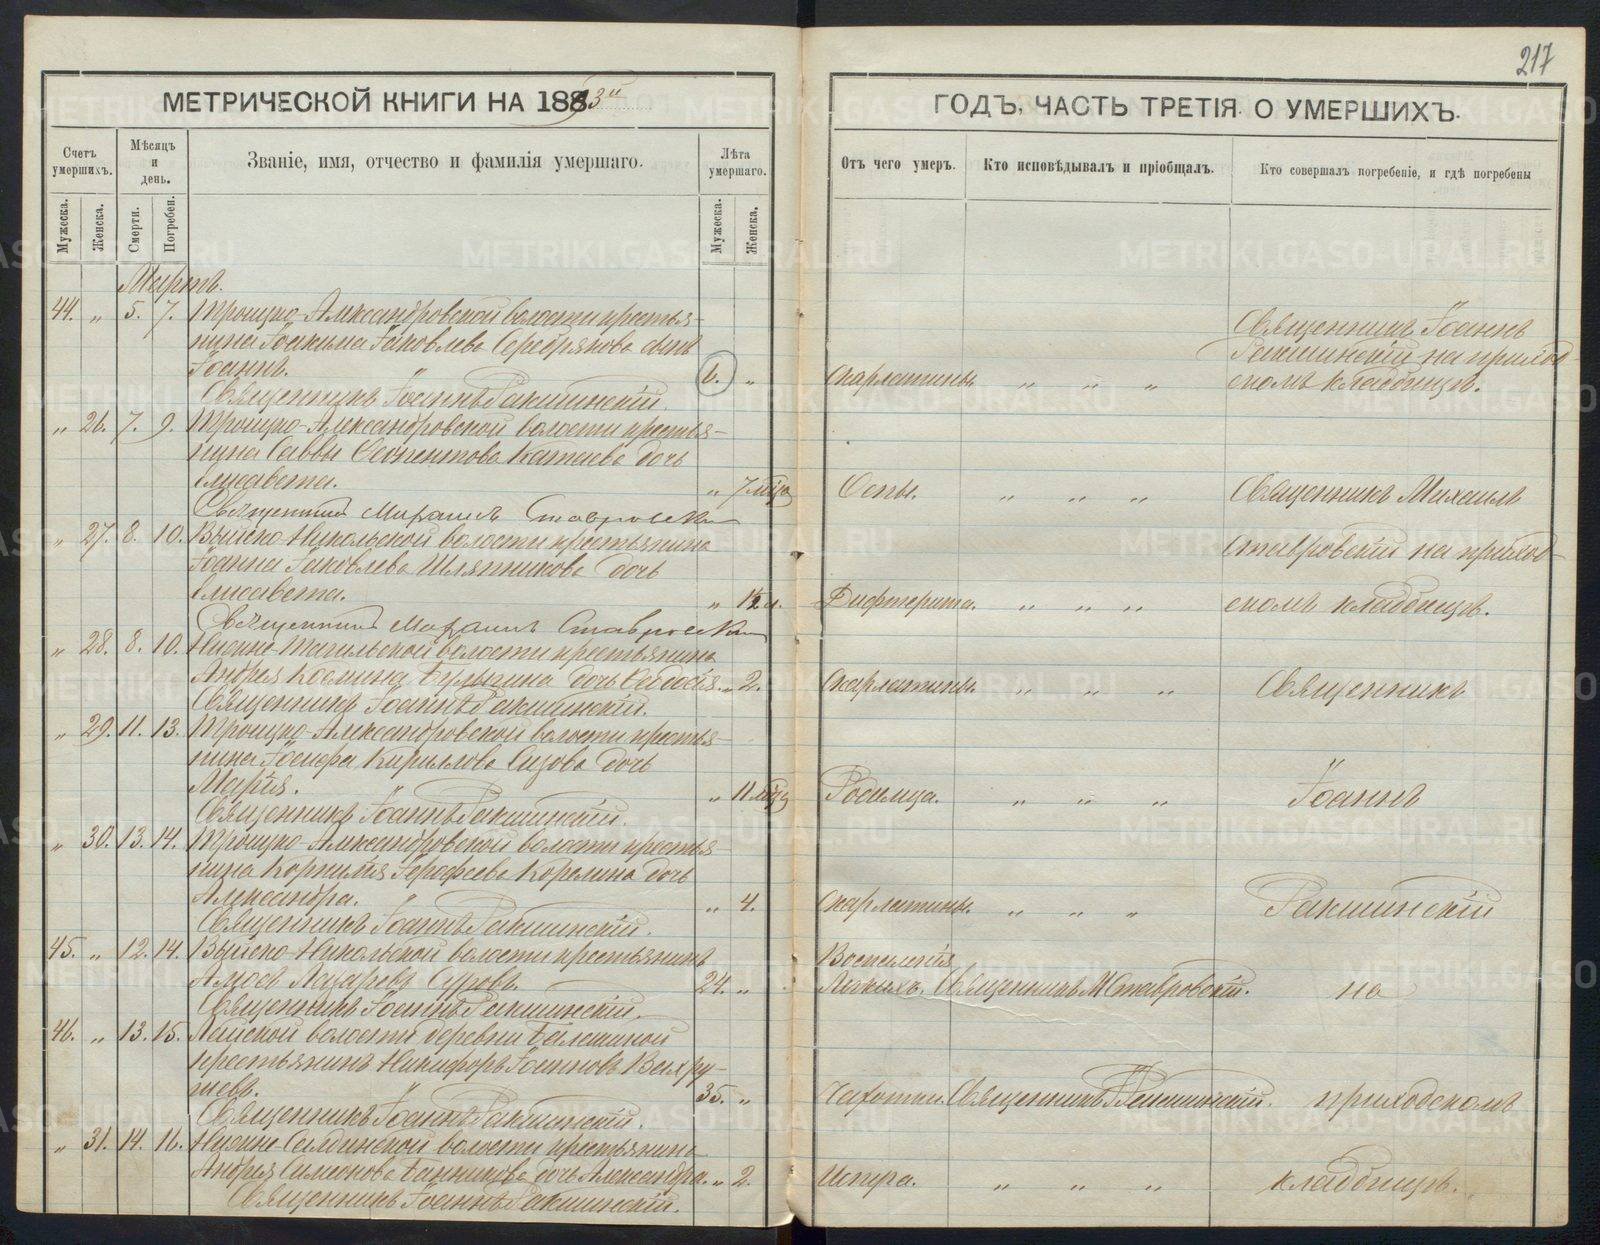 217
МЕТРИЧЕСКОЙ КНИГИ НА 1893й
ГОДЪ, ЧАСТЬ ТРЕТІЯ О УМЕРШИХЪ.
Счетъ умершихъ.
Мѣсяцъ и день.
Званіе, имя, отчество и фамилія умершаго.
Лѣта умершаго.
Отъ чего умеръ.
Кто исповѣдывалъ и пріобщалъ.
Кто совершалъ погребеніе, и гдѣ погребены
Мужеска.
Женска.
Смерти.
Погребен.
Мужеска.
Женска.
Мартъ.
44. " 5. 7. Троицко-Александровской волости крестья-
нина Іоакима Іаковлева Серебрякова сынъ
Іоаннъ. 6. " Скарлатины. " " "
Священникъ Іоаннъ
Ракшинскій на приход
скомъ кладбищѣ.
Священникъ Іоаннъ Ракшинскій
" 26. 7. 9. Троицко-Александровской волости крестья-
нина Саввы Катаева дочь
Елисавета. " 7 мцъ Оспы. " " " Священникъ Михаилъ
Священникъ Михаилъ Ставровскій
" 27. 8. 10. Выйско-Никольской волости крестьянина
Іоанна Іаковлева Шляпникова дочь
Ставровскій на приход
Елисавета. " л. Дифтерита. " " " скомъ кладбищѣ.
Священникъ Михаилъ Ставровскій
" 28. 8. 10. Нижне-Тагильской волости крестьянина
Андрея Космина дочь Евдокія. " 2. Скарлатины. " " " Священникъ
Священникъ Іоаннъ Ракшинскій.
" 29. 11. 13. Троицко-Александровской волости крестья-
нина Іосифа Кириллова Сизова дочь
Марія. " 11 мцъ Родимца. " " " Іоаннъ
Священникъ Іоаннъ Ракшинскій.
" 30. 13. 14. Троицко-Александровской волости крестья-
нина Корнилія Іерофеева Корелина дочь
Александра. " 4. Скарлатины. " " " Ракшинскій
Священникъ Іоаннъ Ракшинскій.
45. " 12. 14. Выйско-Никольской волости крестьянинъ
Воспаленія
Амосъ Лазаревъ Суровъ. 24. " Легкихъ. Священникъ М Ставровскій. на
Священникъ Іоаннъ Ракшинскій.
46. " 13. 15. Лайской волости деревни Балакиной
крестьянинъ Никифоръ Іоанновъ Вахру-
шевъ. 35. " Чахотки. Священникъ І Ракшинскій. приходскомъ
Священникъ Іоаннъ Ракшинскій.
" 31. 14. 16. Нижне-Салдинской волости крестьянина
Андрея Симеонова Банникова дочь Александра. " 2. " " " кладбищѣ.
Священникъ Іоаннъ Ракшинскій.
METRIKI.GASO-URAL.RU